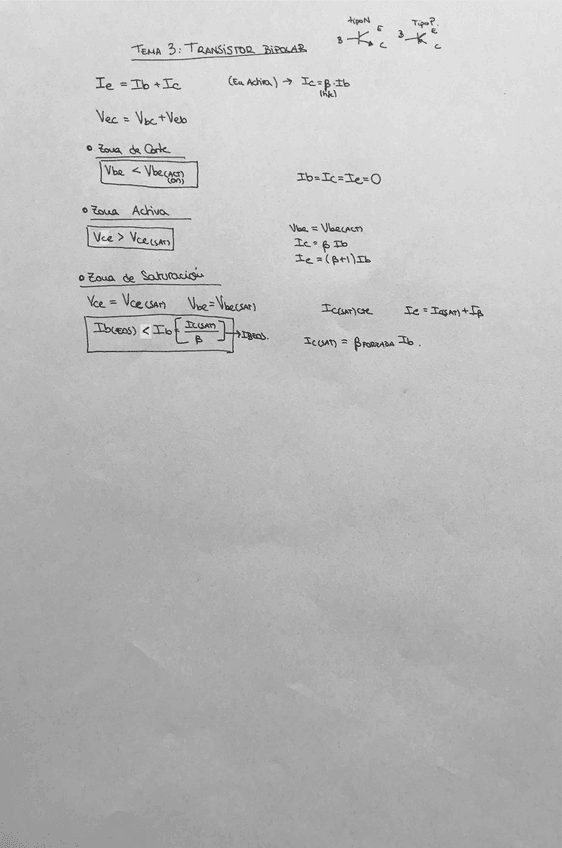 tipo N
Tipo P.
B E C
B E C
TEMA 3: TRANSISTOR BIPOLAR
Ie = Ib + Ic (En Activa) → Ic = β · Ib
(hfe)
Vec = Vbc + Veb
• Zona de Corte
Vbe < Vbe(ACT) Ib = Ic = Ie = 0
(ON)
• Zona Activa
Vce > Vce(SAT)
Vbe = Vbe(ACT)
Ic = β Ib
Ie = (β+1) Ib
• Zona de Saturación
Vce = Vce(SAT) Vbe = Vbe(SAT) Ic(SAT) cte Ie = Ic(SAT) + IB
Ib(EOS) < Ib [Ic(SAT)/β] → IBEOS.
Ic(SAT) = β FORZADA Ib.